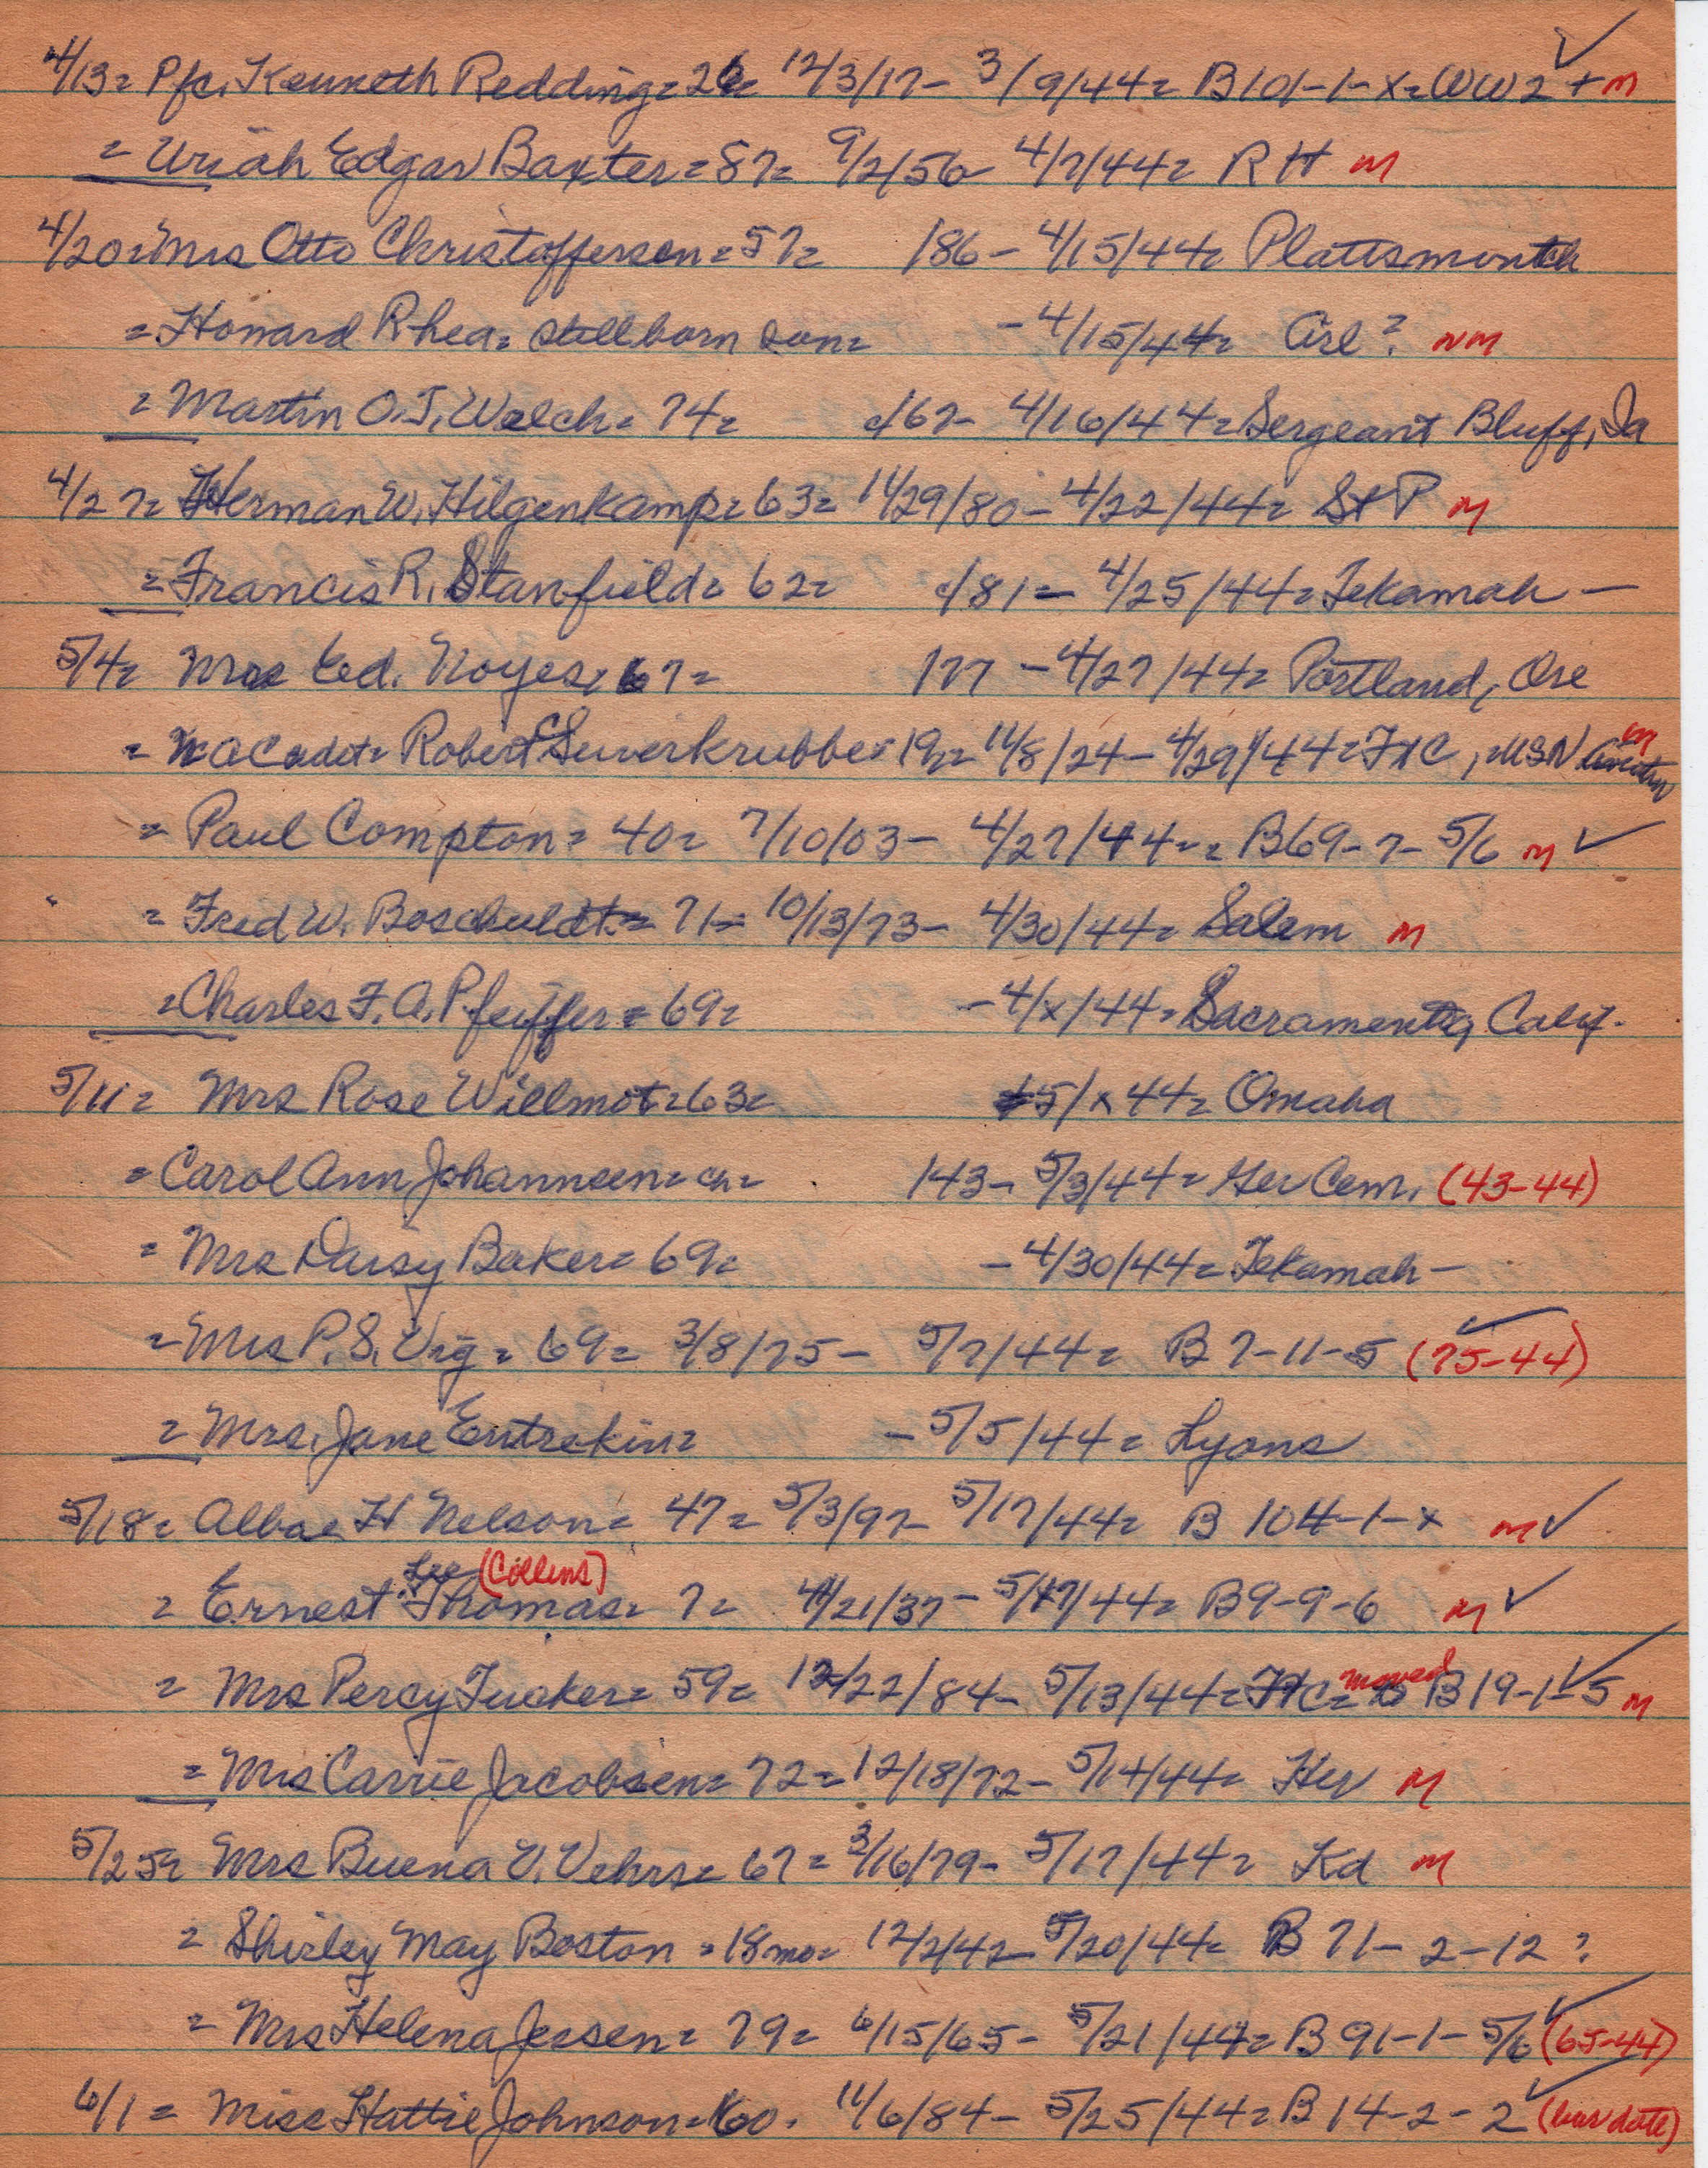 4/13= Pfc. Kenneth Redding=26= 12/3/17- 3/9/44= B101-1-x=WW2+ M ✓
= Uriah Edgar Baxter=87= 9/2/56- 4/7/44= RH M
4/20= Mrs Otto Christoffersen=57= /86- 4/15/44= Plattsmouth
= Howard Rhea= stillborn son= -4/15/44= Arl? NM
= Martin O.J. Welch= 74= c/67- 4/16/44= Sergeant Bluff, Ia
4/27= Herman W. Hilgenkamp= 63= 11/29/80- 4/22/44= St P M
= Francis R. Stanfield= 62= c/81= 4/25/44= Tekamah -
5/4= Mrs Ed. Noyes= 67= /77 -4/27/44= Portland, Ore
= Cadet= Robert Suverkrubbe= 19= 11/8/24- 4/29/44= FtC, MSN M
= Paul Compton= 40= 7/10/03- 4/27/44-= B69-7-5/6 M ✓
= Fred W. Boschuldt= 71= 10/13/73- 4/30/44= Salem M
=Charles F.A. Pfeiffer= 69= -4/x/44= Sacramento, Calif.
5/11= Mrs Rose Willmot=63= 5/x 44= Omaha
= Carol Ann Johannsen= ch= /43- 5/3/44= Ger Cem. (43-44)
= Mrs Daisy Baker= 69= -4/30/44= Tekamah -
= Mrs P.S. Vig= 69= 3/8/75- 5/7/44= B 7-11-5 (75-44) ✓
= Mrs. Jane Entrekin= -5/5/44= Lyons
5/18= Albae H Nelson= 47= 5/3/97- 5/17/44= B 104-1-x M ✓
Lee (Collins)
= Ernest Thomas= 7= 4/21/37- 5/17/44= B9-9-6 M ✓
= Mrs Percy Tucker= 59= 12/22/84- 5/13/44= FtC= moved to B19-1-5 M ✓
= Mrs Carrie Jacobsen= 72= 12/18/72- 5/14/44= Her M
5/25= Mrs Buena V. Vehrs= 67= 3/16/79- 5/17/44= Kd M
= Shirley May Boston = 18mo= 12/2/42- 5/20/44= B 71-2-12 ?
= Mrs Helena Jessen= 79= 6/15/65- 5/21/44= B 91-1-5/6 (65-44) ✓
6/1= Miss Hattie Johnson= 60. 11/6/84- 5/25/44= B 14-2-2 (bur date) ✓